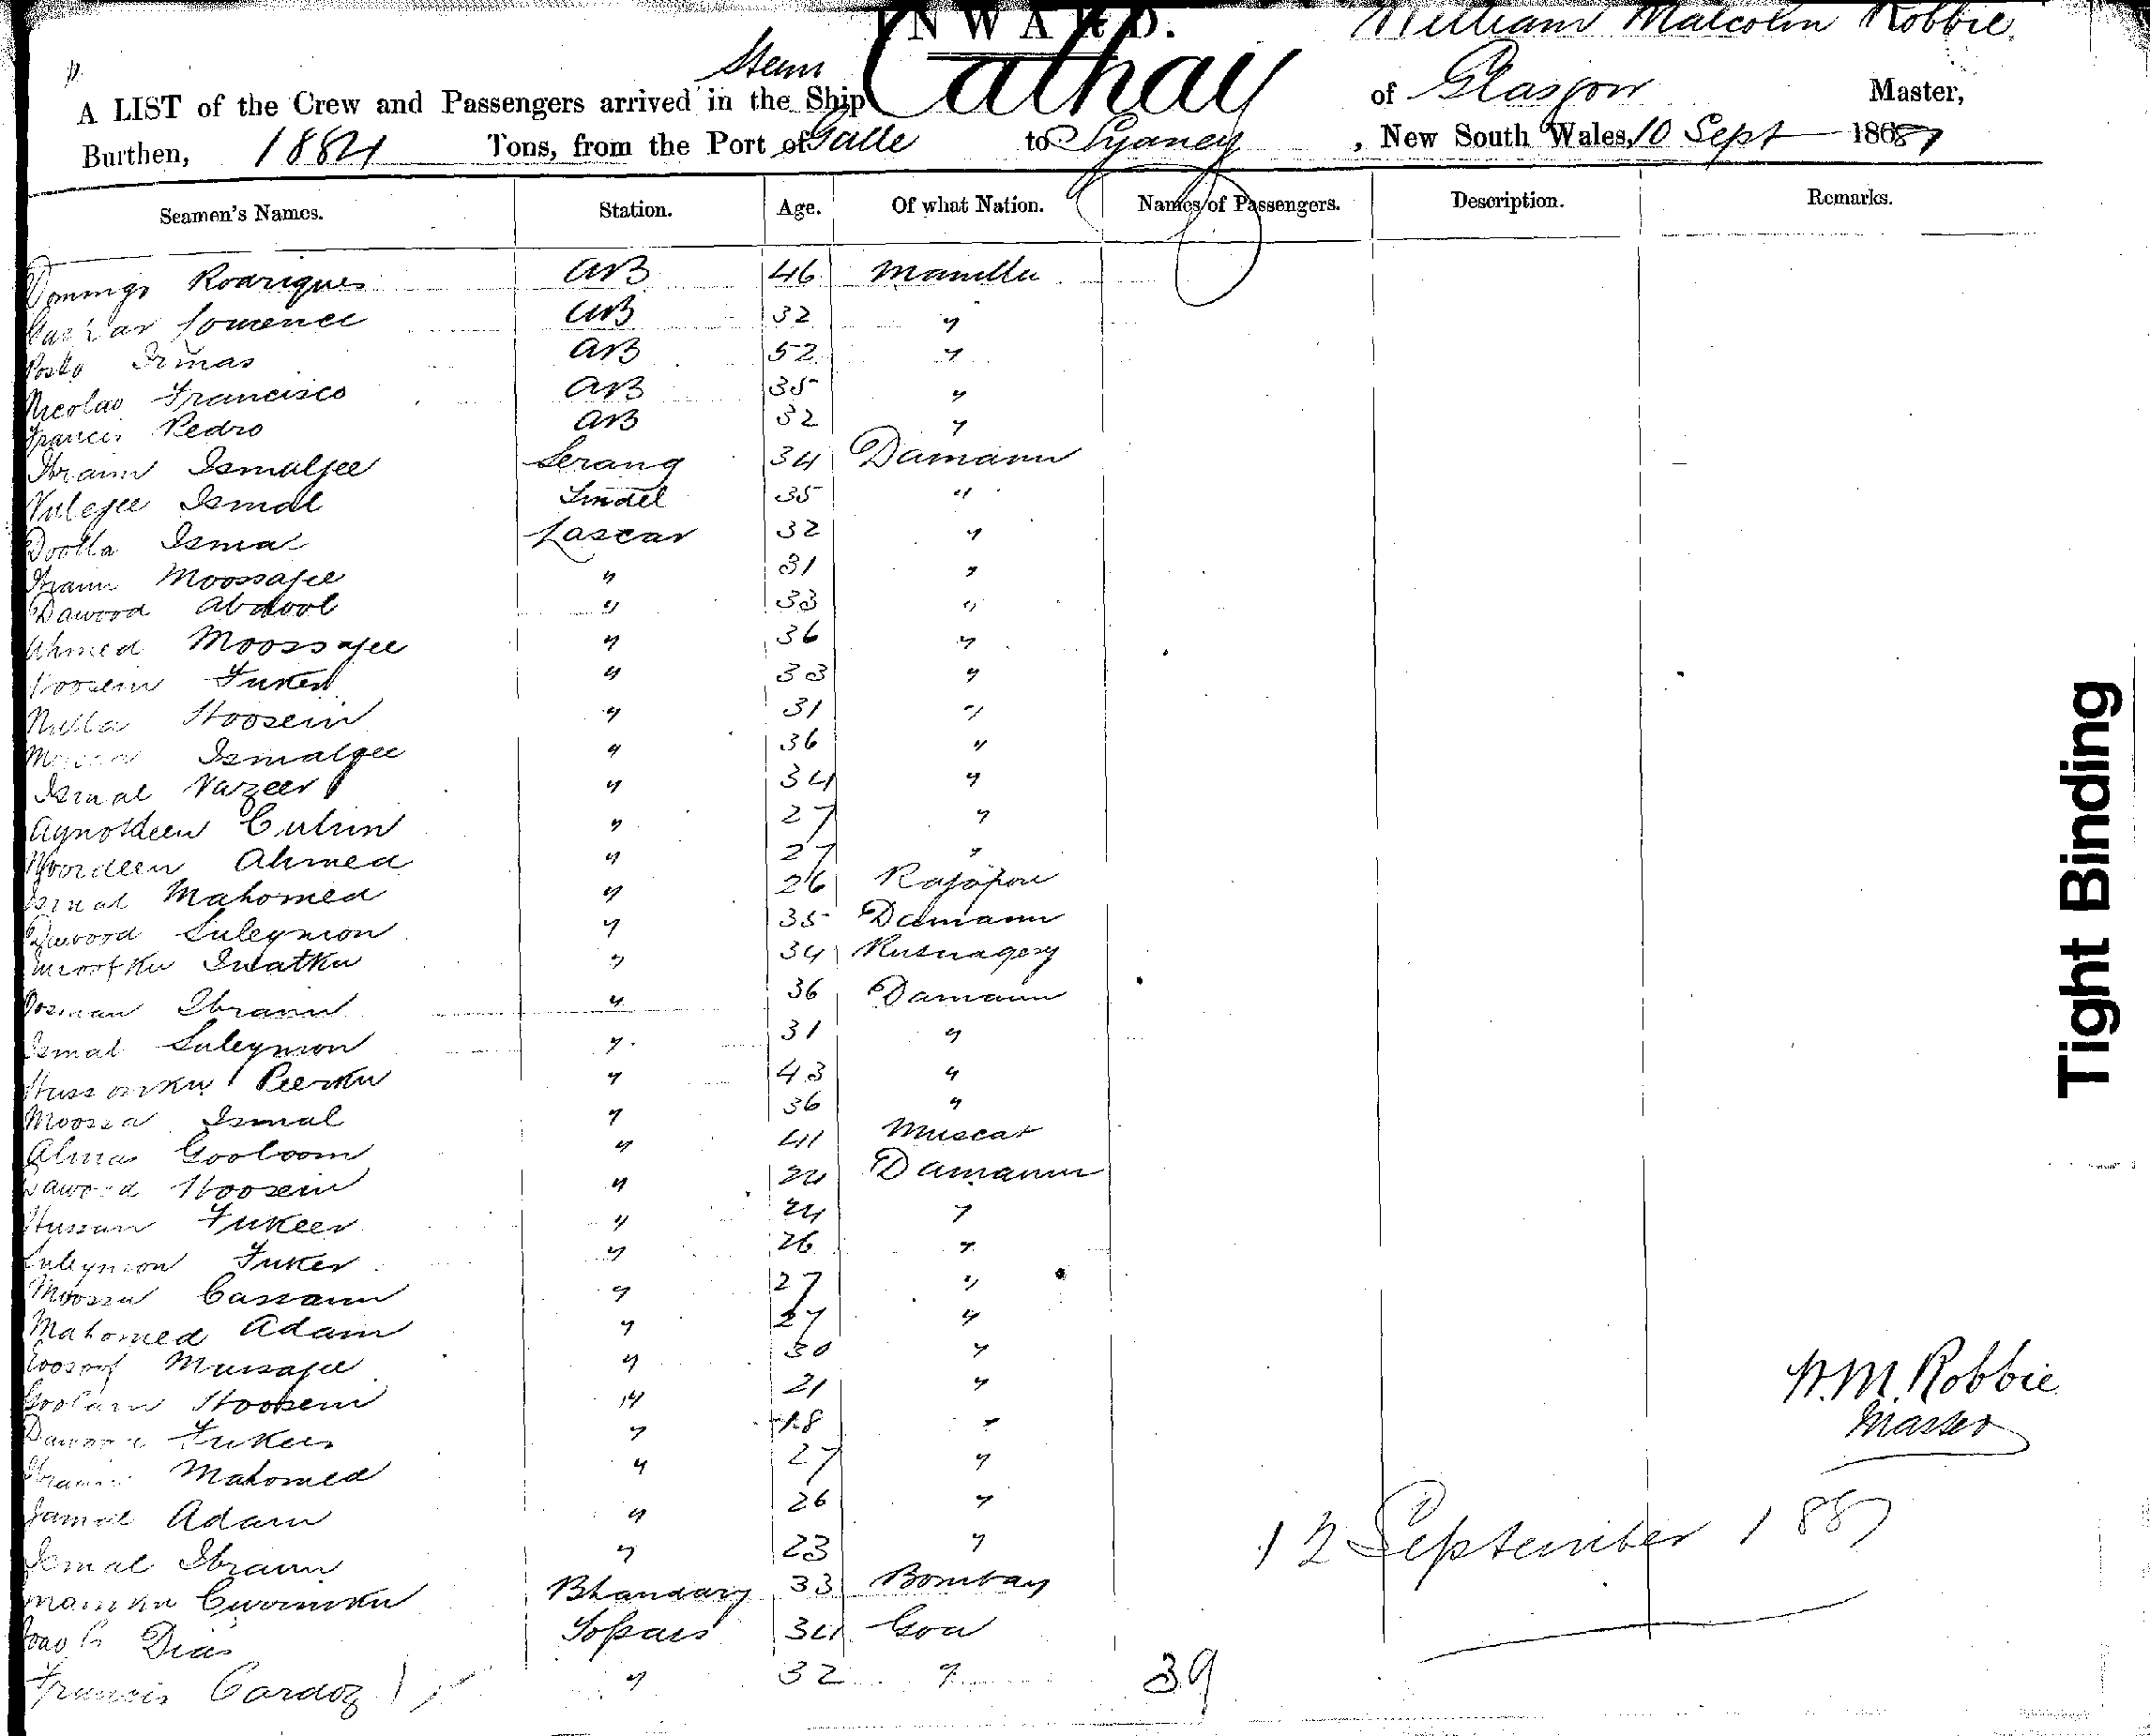 INWARD.
William Malcolm Robbie
Steam
A LIST of the Crew and Passengers arrived in the Ship Cathay of Glasgow Master,
Burthen, 1884 Tons, from the Port of Galle to Sydney, New South Wales, 10 Sept 1887
Seamen's Names. Station. Age. Of what Nation. Names of Passengers. Description. Remarks.
Domingo Rodrigues AB 46 Manilla
Lourence AB 32 "
Irmas AB 52 "
Nicolao Francisco AB 35 "
Francis Pedro AB 32 "
Ibraim Ismaljee Serang 34 Damaun
Valejee Ismal Tindel 35 "
Doolla Ismal Lascar 32 "
Ibraim Moossajee " 31 "
Dawood Abdool " 33 "
Ahmed Moossajee " 36 "
Hoosein Fukeer " 33 "
Hoosein " 31 "
Ismaljee " 36 "
Ismal Vazeer " 34 "
Aynordeen " 27 "
Noordeen Ahmed " 27 "
Ismal Mahomed " 26 Rajapore
Dawood Suleymon " 35 Damaun
" 34 Rutnagery
Oosman Ibraim " 36 Damaun
Ismal Suleymon " 31 "
Peerku " 43 "
Moossa Ismal " 36 "
Almas Gooloom " 41 Muscat
Dawood Hoosein " 24 Damaun
Hussan Fukeer " 24 "
Suleymon Fukeer " 26 "
Moossa Cassam " 27 "
Mahomed Adam " 27 "
Eoosoof Mussajee " 30 "
Goolam Hoosein " 21 "
Dawood Fukeer " 18 "
Ibraim Mahomed " 27 "
W. M. Robbie
Master
Adam " 26 "
Ismal Ibraim " 23 "
12 September 1887
Bhandary 33 Bombay
Dias Topass 34 Goa
Francis Cardoz " 32 "
39
Tight Binding